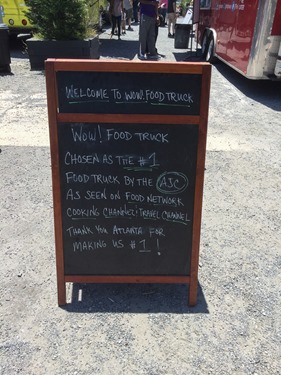 WELCOME TO WOW! FOOD TRUCK
WOW! FOOD TRUCK
CHOSEN AS THE #1
FOOD TRUCK BY THE AJC
AS SEEN ON FOOD NETWORK
COOKING CHANNEL & TRAVEL CHANNEL
THANK YOU ATLANTA FOR
MAKING US #1!